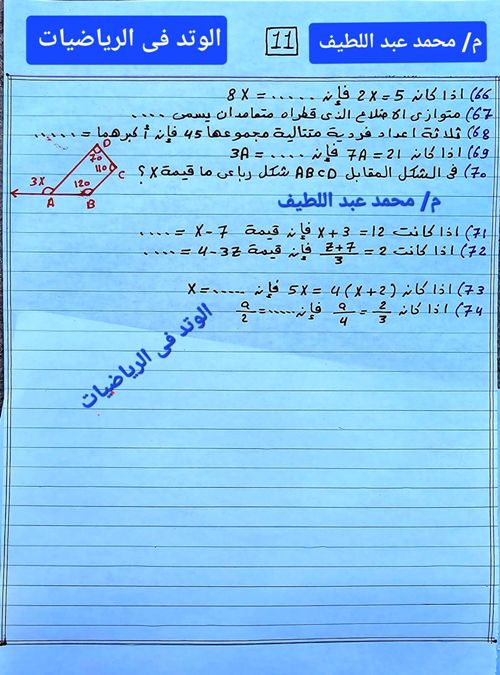 م/ محمد عبد اللطيف 11 الوتد فى الرياضيات
66) اذا كان 2X = 5 فإن ..... = 8X
67) متوازى الاضلاع الذى قطراه متعامدان يسمى ....
68) ثلاثة اعداد فردية متتالية مجموعها 45 فإن أكبرهما = ......
69) اذا كان 7A = 21 فإن ..... = 3A
70) فى الشكل المقابل ABCD شكل رباعى ما قيمة X ؟
D
70
110
C
3X
120
A
B
م/ محمد عبد اللطيف
71) اذا كانت X + 3 = 12 فإن قيمة X - 7 = ....
72) اذا كانت (Z+7)/3 = 2 فإن قيمة 4 - 3Z = ....
73) اذا كان 5X = 4(X+2) فإن ..... = X
74) اذا كان a/4 = 2/3 فإن ..... = a/2
الوتد فى الرياضيات